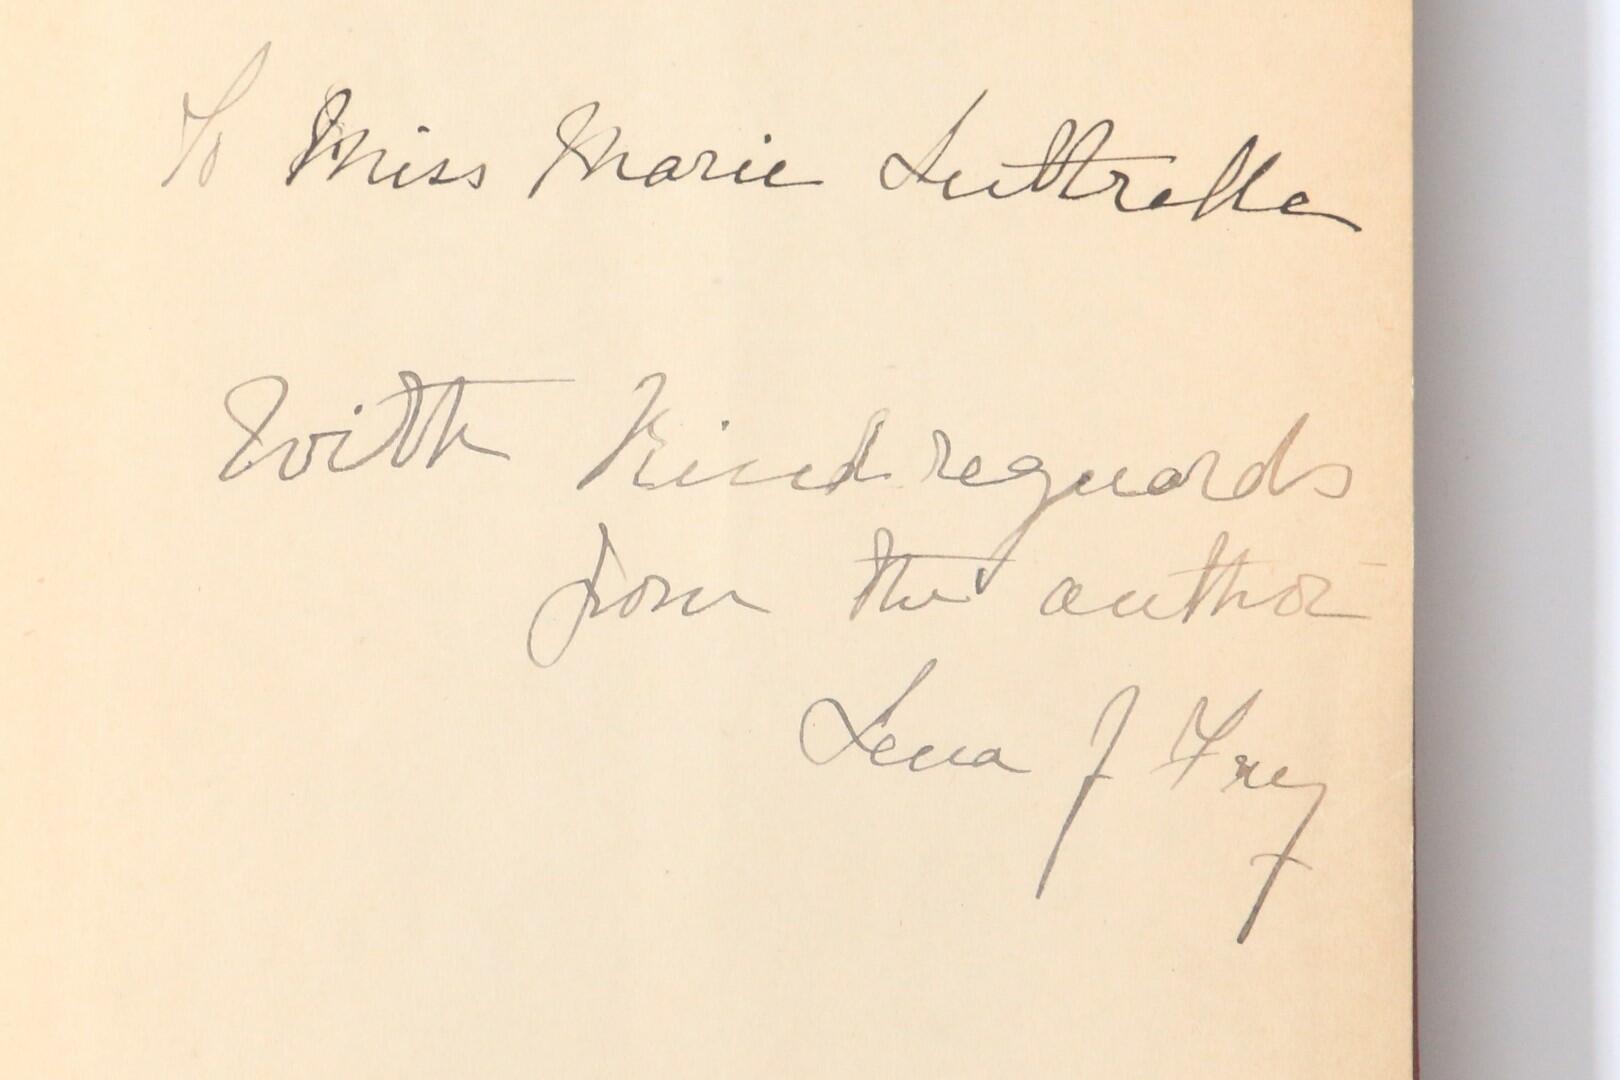 To Miss Marie Luttrelle
With Kind reguards
from the author
Lena J Fry